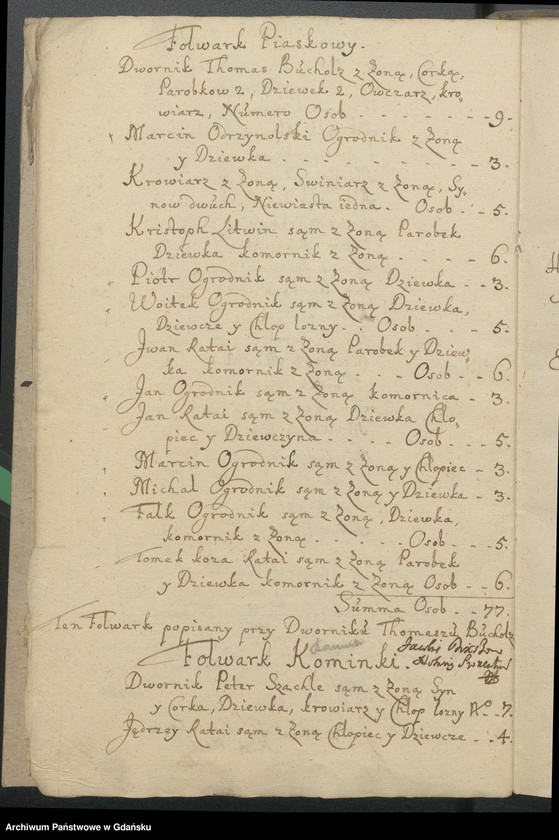 Folwark Piaskowy.
Dwornik Thomas Bucholz z Żoną, Corką,
Parobkow 2, Dziewek 2, Owczarz, kro,
wiarz, Numero Osob - - - - - - 9.
Marcin Odrzynolski Ogrodnik z Żoną
y Dziewka - - - - - - - - 3.
Krowiarz z Żoną, Swiniarz z Żoną, Sy,
now dwuch, Niewiasta iedna. Osob - - 5.
Kristoph Litwin sąm z Żoną Parobek
Dziewka komornik z Żoną - - - - 6.
Piotr Ogrodnik sąm z Żoną Dziewka - - 3.
Woitek Ogrodnik sąm z Żoną Dziewka,
Dziewcze y Chlop lozny . . Osob - - - 5.
Jwan Ratai sąm z Żoną Parobek y Dziew,
ka komornik z Żoną - - - Osob - - 6.
Jan Ogrodnik sąm z Żoną komornica - 3.
Jan Ratai sąm z Żoną Dziewka Chlo,
piec y Dziewczyna - - - - Osob - - - 5.
Marcin Ogrodnik sąm z Żoną y Chlopiec - 3.
Michal Ogrodnik sąm z Żoną y Dziewka - 3.
Falk Ogrodnik sąm z Żoną, Dziewka,
komornik z Żoną - - - - - Osob - - 5.
Tomek koza Ratai sąm z Żoną Parobek
y Dziewka komornik z Żoną Osob - - 6.
Summa Osob - - 77.
Ten Folwark popisany przy Dworniku Thomaszu Bucholz
Folwark Kominki.
Dwornik Peter Szachle sąm z Żoną Syn
y Corka, Dziewka, krowiarz y Chlop lozny No - 7.
Jędrzey Ratai sąm z Żoną Chlopiec y Dziewcze - - 4.
Archiwum Państwowe w Gdańsku